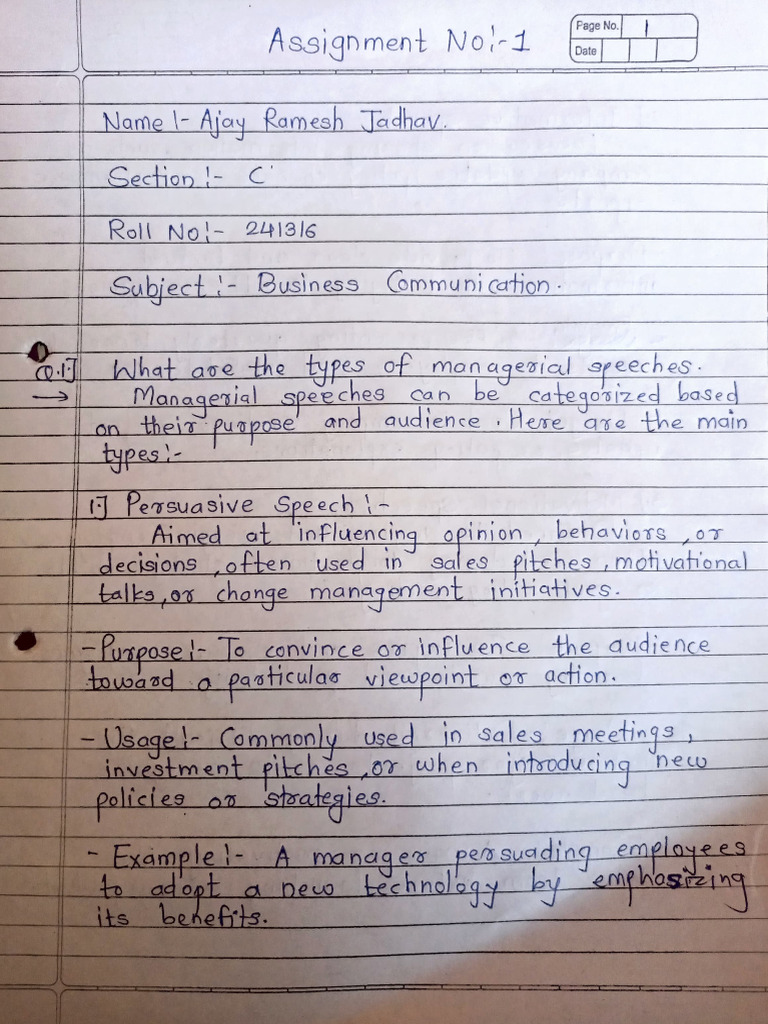 Assignment No:-1
Page No. 1
Date
Name :- Ajay Ramesh Jadhav.
Section :- C
Roll No:- 241316
Subject :- Business Communication.
Q.1] What are the types of managerial speeches.
→ Managerial speeches can be categorized based
on their purpose and audience. Here are the main
types:-
1.] Persuasive Speech :-
Aimed at influencing opinion, behaviors, or
decisions, often used in sales pitches, motivational
talks, or change management initiatives.
- Purpose :- To convince or influence the audience
toward a particular viewpoint or action.
- Usage :- Commonly used in sales meetings,
investment pitches, or when introducing new
policies or strategies.
- Example :- A manager persuading employees
to adopt a new technology by emphasizing
its benefits.